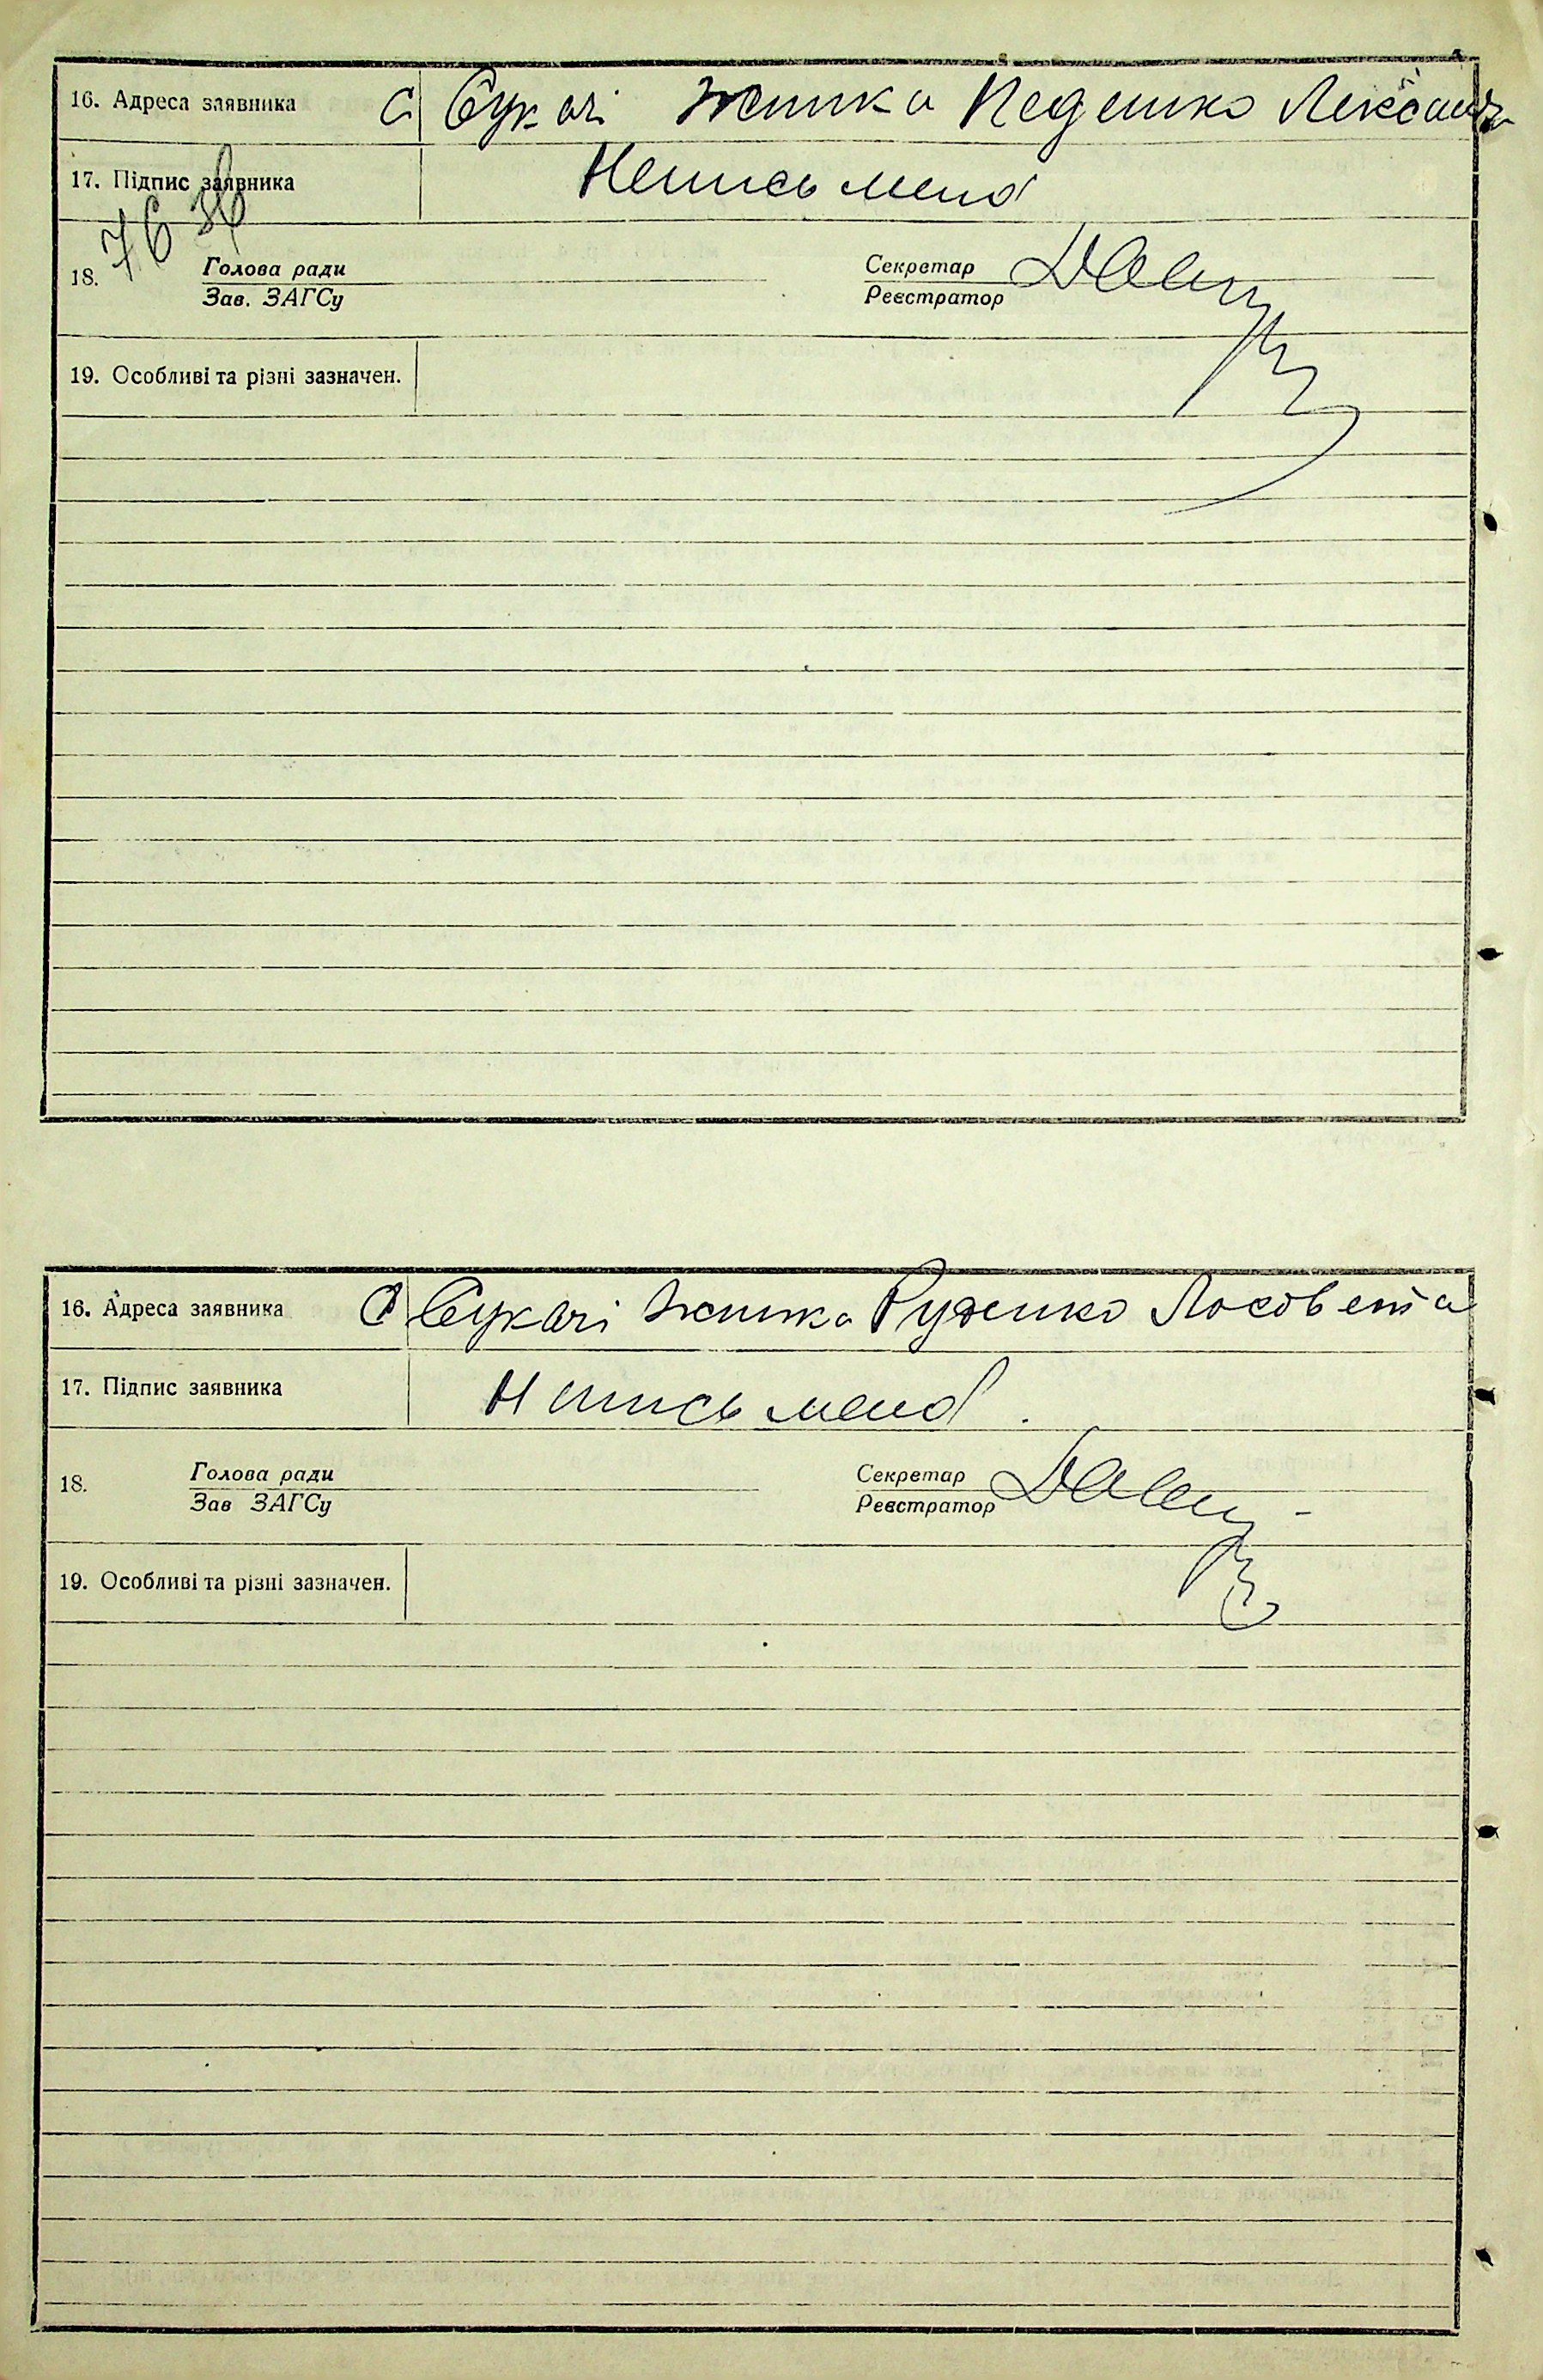 16. Адреса заявника с Сукачі жинка Педенко Лександра
17. Підпис заявника Неписьмена
76 зв
18. Голова ради Секретар
Зав. ЗАГСу Реєстратор
19. Особливі та різні зазначен.
16. Адреса заявника с Сукачі жинка Руденко Лосовета
17. Підпис заявника Нписьмена.
18. Голова ради Секретар
Зав ЗАГСу Реєстратор
19. Особливі та різні зазначен.